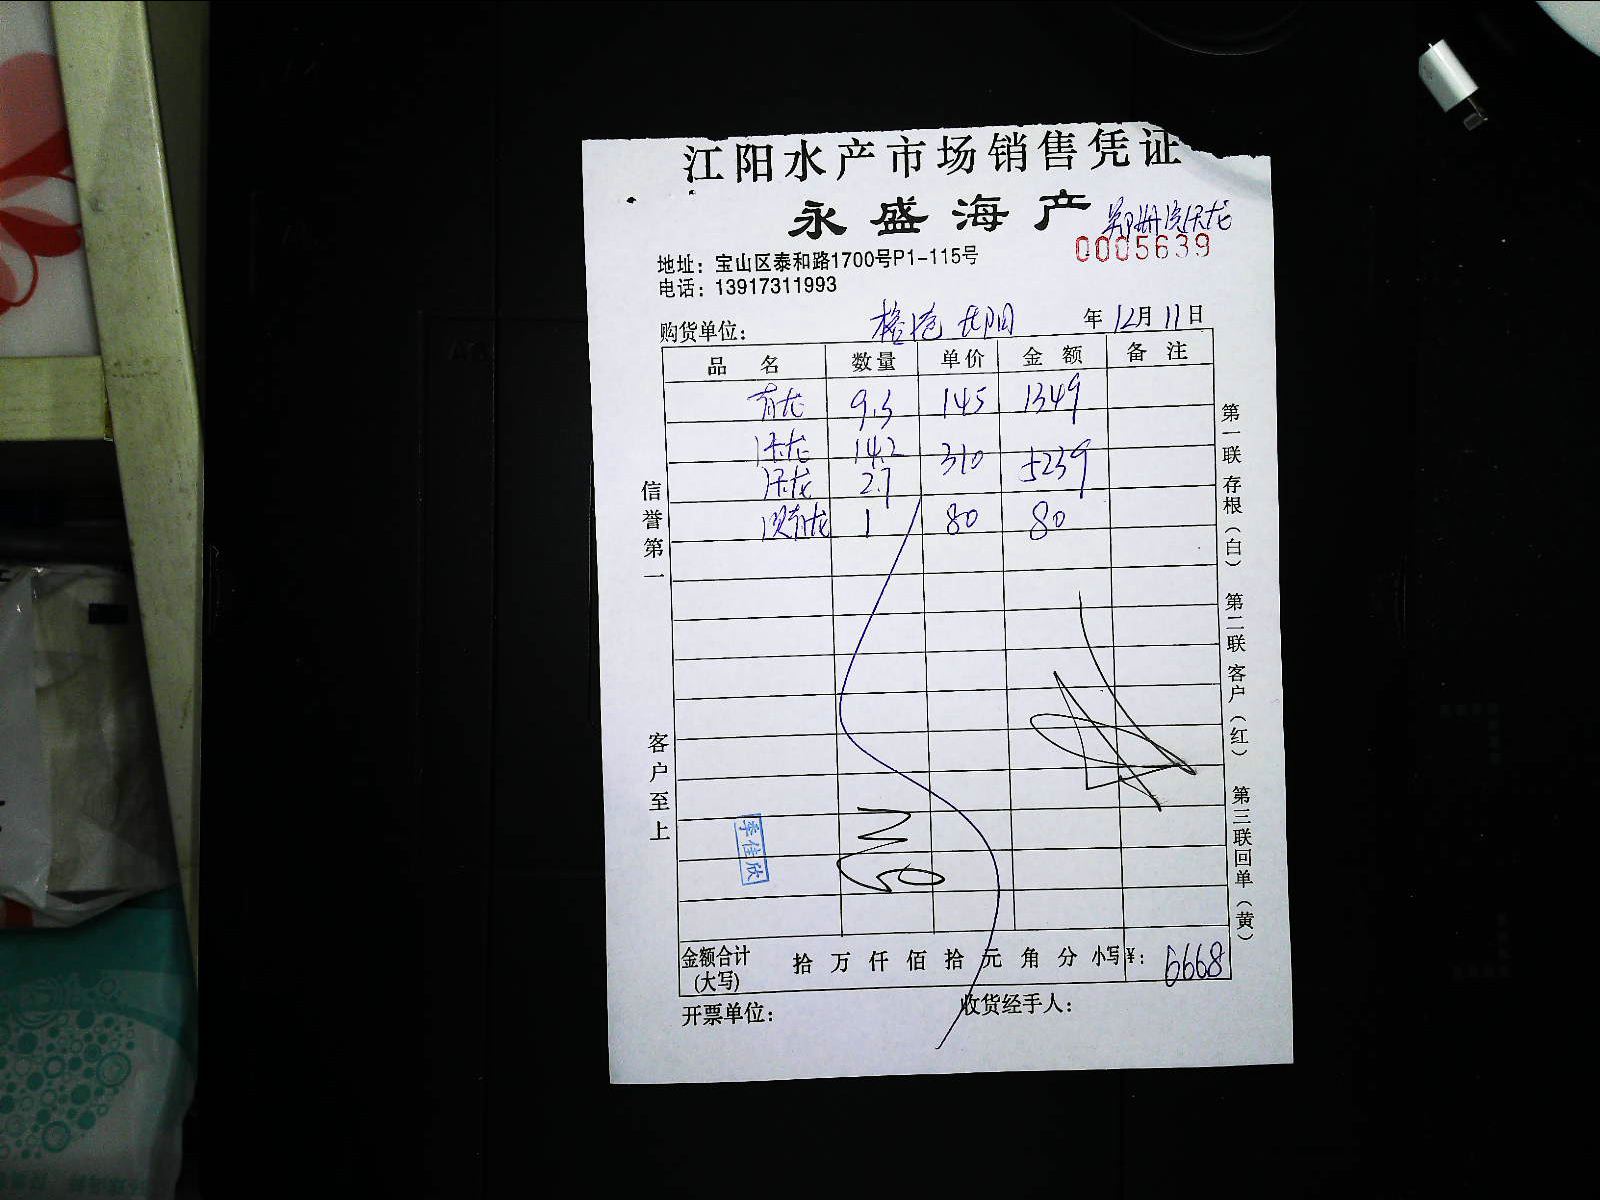 江阳水产市场销售凭证
永盛海产
0005639
地址：宝山区泰和路1700号P1-115号
电话：13917311993
购货单位： 年 12月 11日
品名 数量 单价 金额 备注
青龙 9.3 145 1349
沃龙 14.2 310 5239
沃龙 2.7
青龙 1 80 80
金额合计(大写) 拾 万 仟 佰 拾 元 角 分 小写¥：6668
开票单位： 收货经手人：
信誉第一
客户至上
第一联存根（白）
第二联客户（红）
第三联回单（黄）
李佳欣